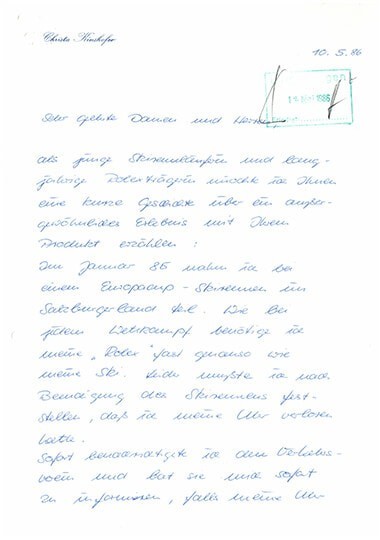 Christa Kinshofer
10. 5. 86
Sehr geehrte Damen und Herren
als junge Skirennläuferin und lang-
jährige Rolexträgerin möchte ich Ihnen
eine kurze Geschichte über ein außer-
gewöhnliches Erlebnis mit Ihrem
Produkt erzählen :
Im Januar 85 nahm ich bei
einem Europacup - Skirennen im
Salzburgerland teil. Wie bei
jedem Wettkampf benötige ich
meine „Rolex" fast genauso wie
meine Ski. Leider mußte ich nach
Beendigung des Skirennens fest-
stellen, daß ich meine Uhr verloren
hatte.
Sofort benachrichtigte ich den Verkehrs-
verein und bat sie mich sofort
zu informieren, falls meine Uhr